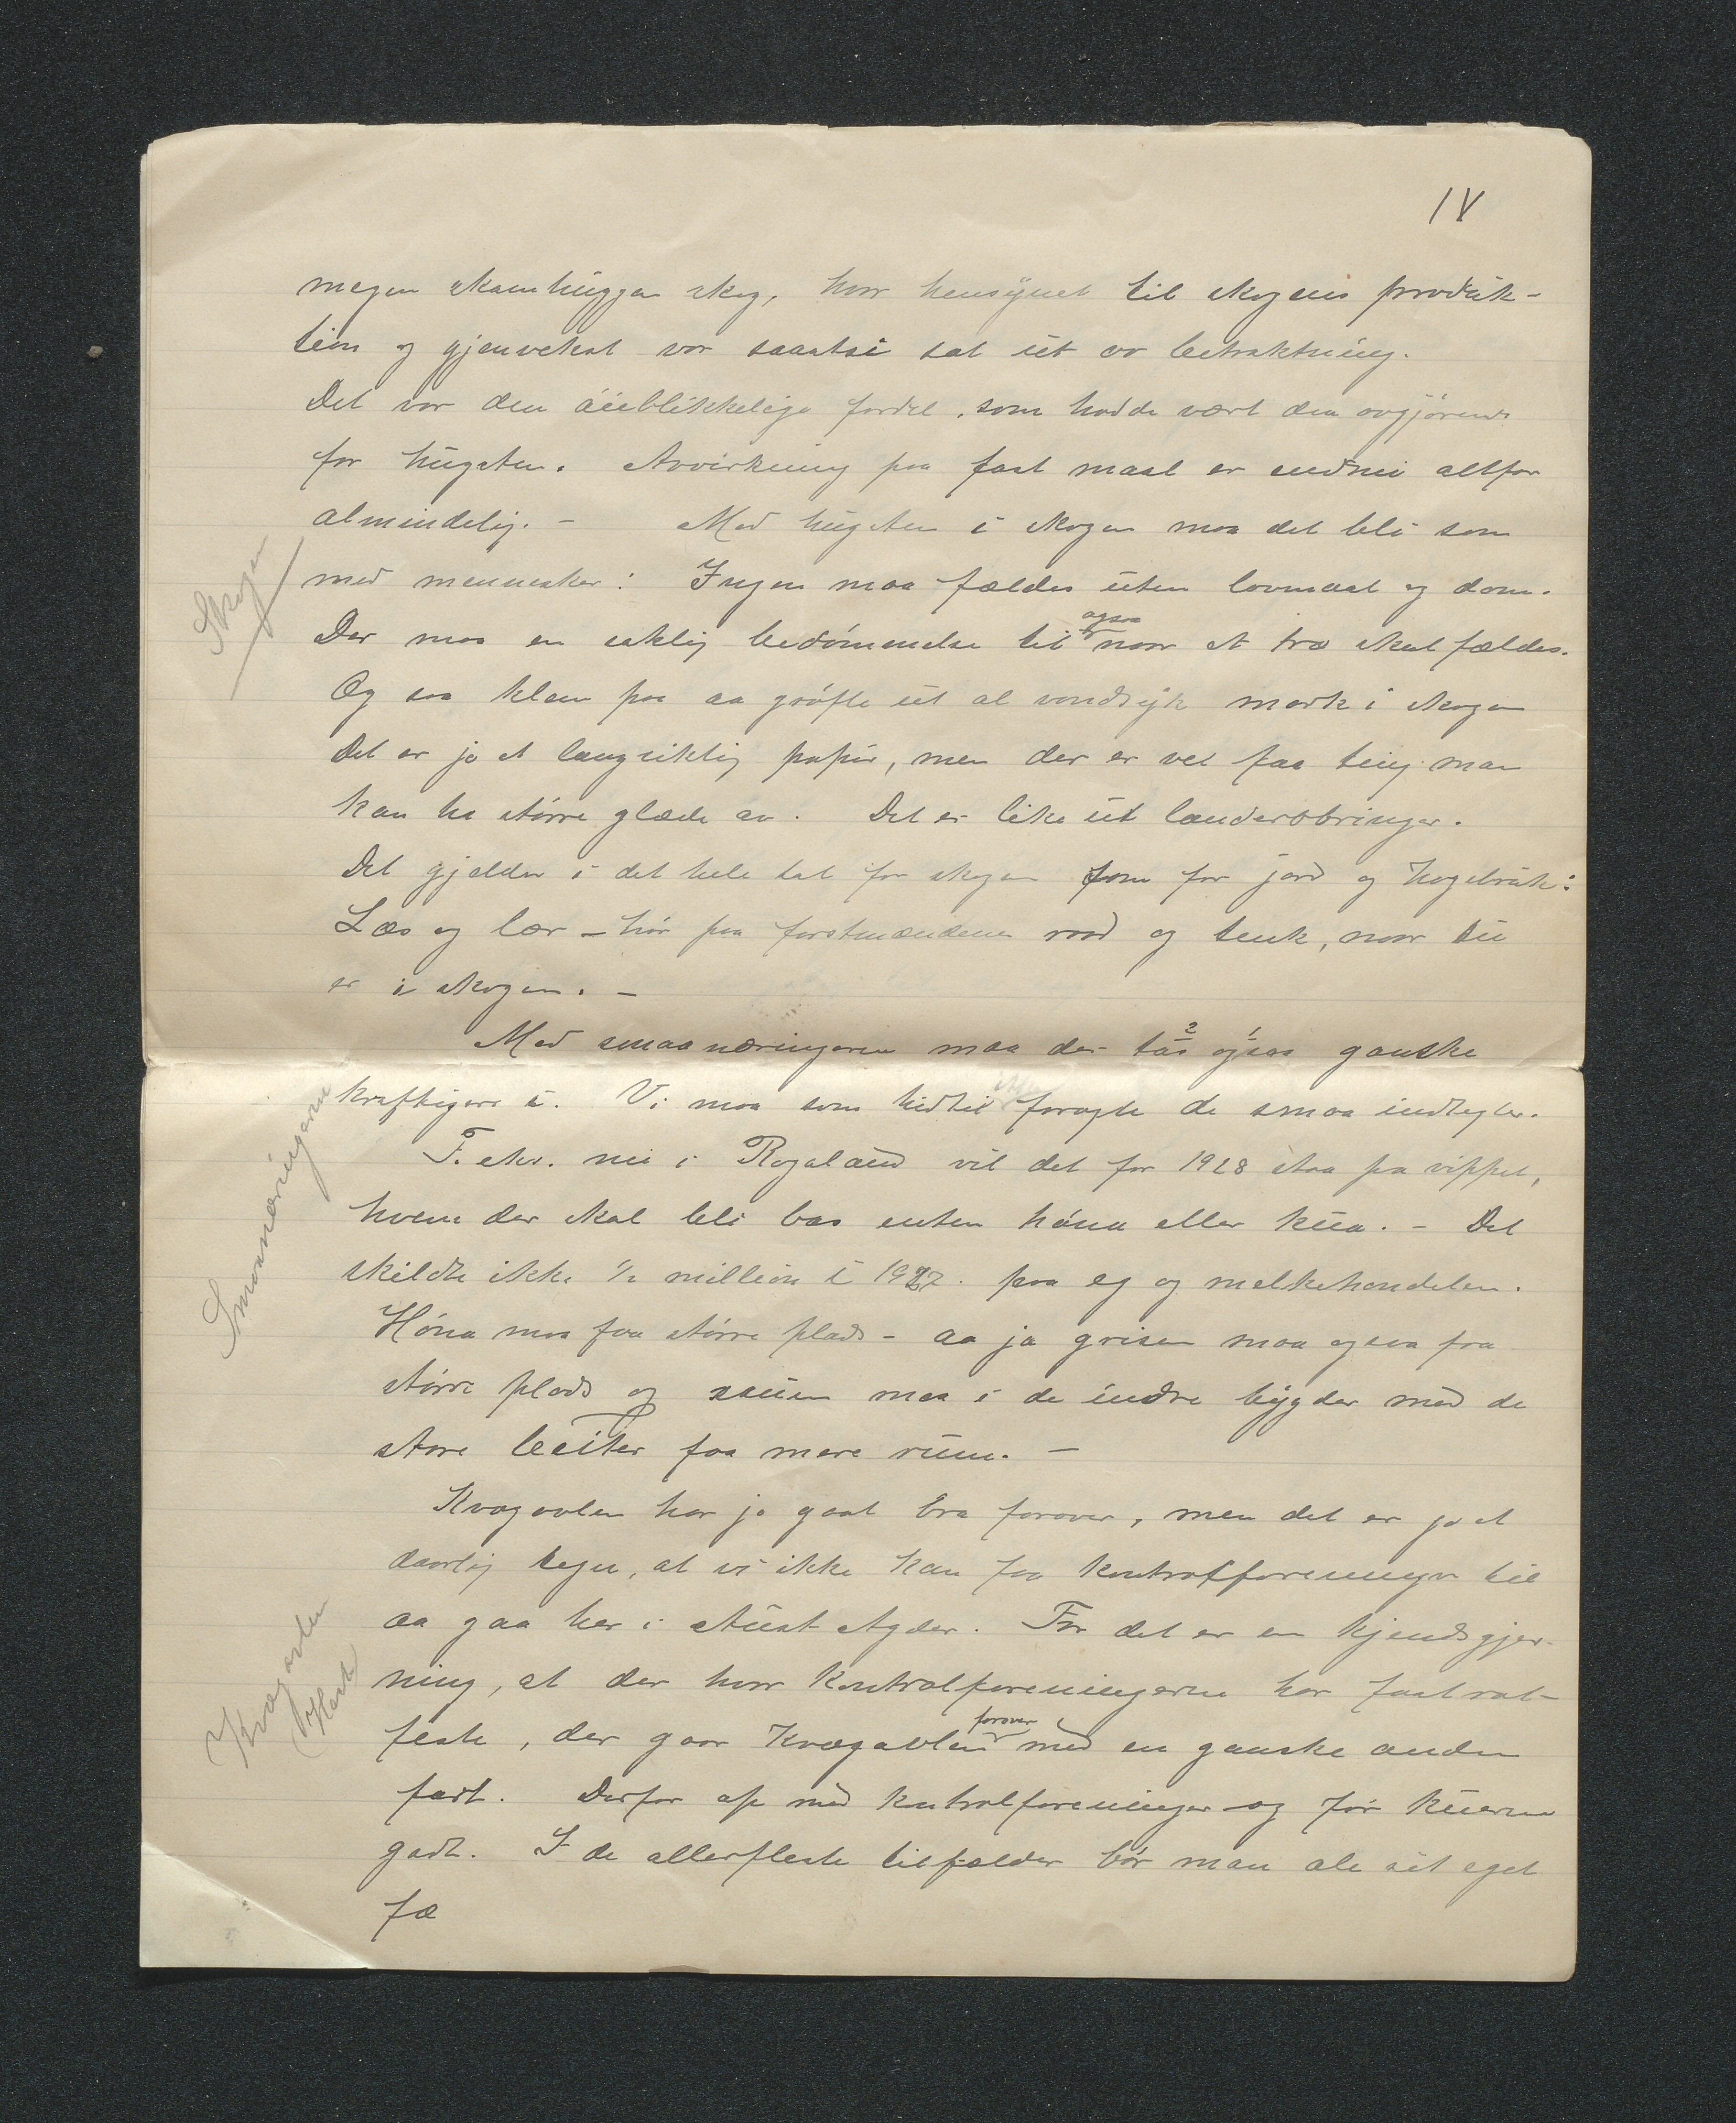 IV
megen skamhuggen skog, hvor hensynet til skogens produk-
tion og gjenvekst var saatsi sat ut av betraktning.
Det var den øieblikkelige fordel, som hadde vært den avgjørende
for hugsten. Avvirkning paa fast maal er endnu altfor
almindelig. – Med hugsten i skogen maa det bli som
Skogen
med mennesker: Ingen maa fældes uten lovmaal og dom.
Der maa en saklig bedømmelse til ogsaa naar et træ skal fældes.
Og saa klem paa aa grøfte ut al vondsyk mark i skogen
Det er jo et langsiktig papir, men der er vel faa ting man
kan ha større glæde av. Det er like ut landerobringer.
Det gjælder i det hele tat for skogen som for jord og hagebruk:
Læs og lær – hør paa forstmændenes raad og tenk, naar du
er i skogen. –
Med smaanæringerne maa der tas ogsaa ganske
Smaanæringerne
kraftigere i. Vi maa som hidtil foragte de smaa indtegter.
F. eks. nu i Rogaland vil det for 1928 staa paa vippet,
hvem der skal bli bas enten høna eller kua. – Det
skildte ikke ½ million i 1927. paa eg og melkehandelen.
Høna maa faa større plads – aa ja grisen maa ogsaa faa
større plads og sauen maa i de indre bygder med de
store beiter faa mere rum. –
Kvægavlen har jo gaat bra forover, men det er jo et
daarlig tegn, at vi ikke kan faa kontrolforeninger til
aa gaa her i Aust-Agder. For det er en kjendsgjer-
Kvægavlen
ning, at der hvor kontrolforeningerne har fast rot-
feste, der gaar kvægavlen forover med en ganske anden
fart. Derfor op med kontrolforeninger og før kuerne
godt. I de allerfleste tilfælder bør man ale sit eget
fæ